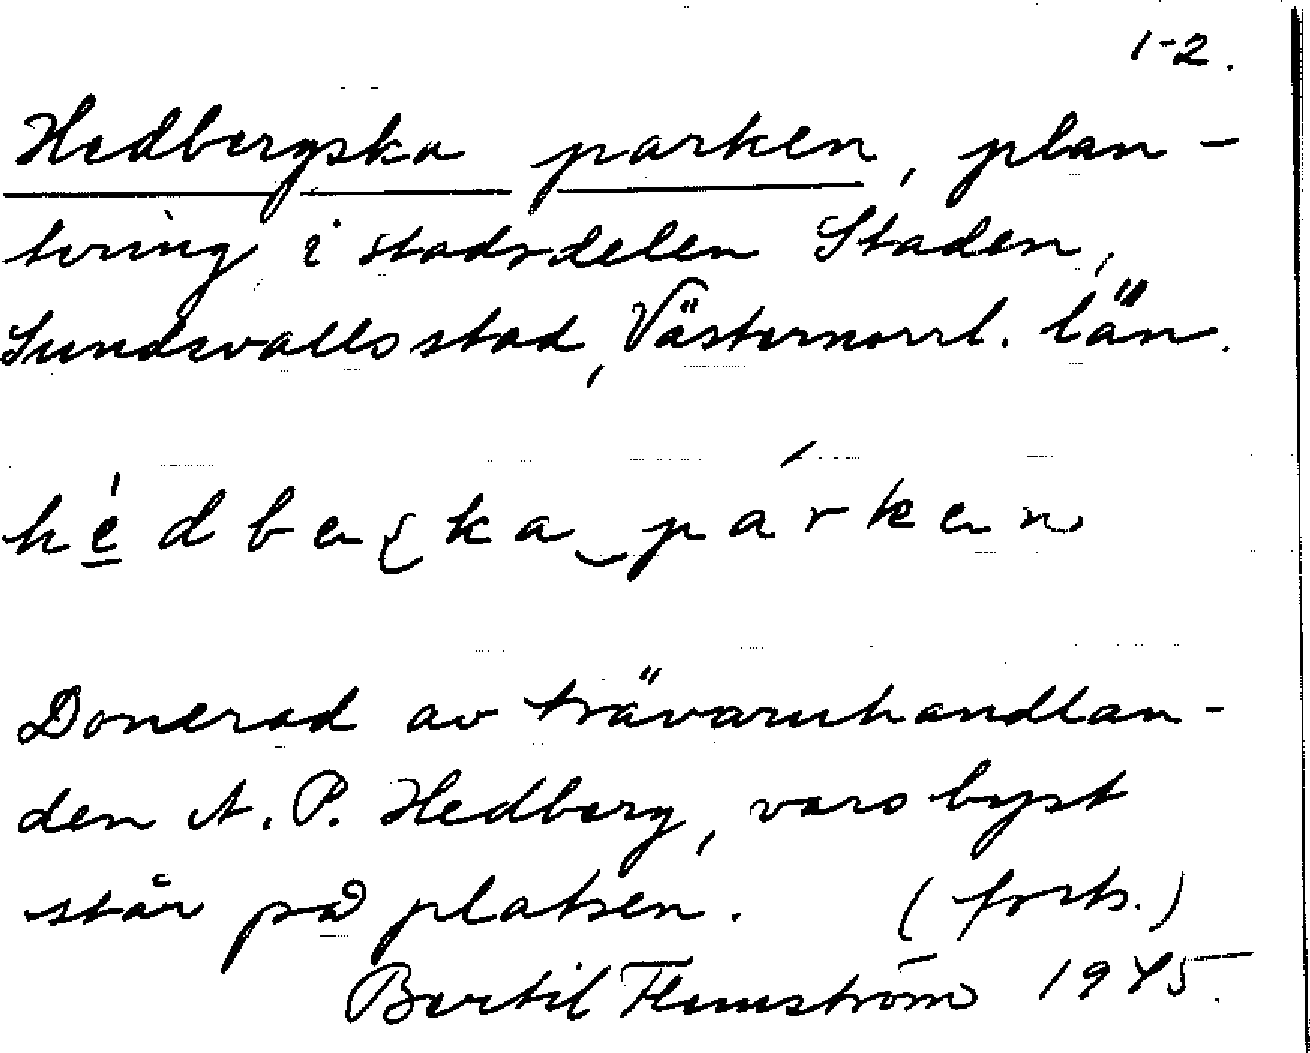 1-2.
Hedbergska parken, plan-
tering i stadsdelen Staden,
Sundsvalls stad, Västernorrl. län.
hédbeʃka parken
Donerad av trävaruhandlan-
den A. P. Hedberg, vars byst
står på platsen. (forts.)
Bertil Flemström 1975.